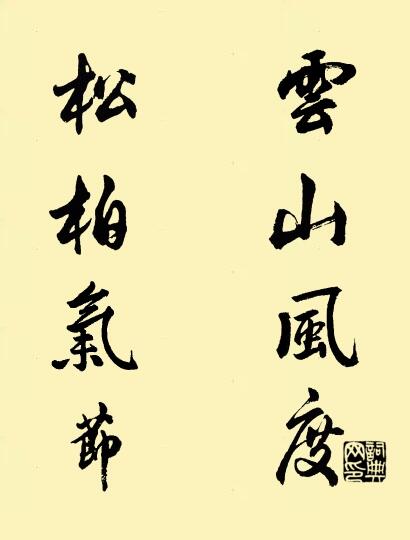 雲山風度
松柏氣節
詞典
网印